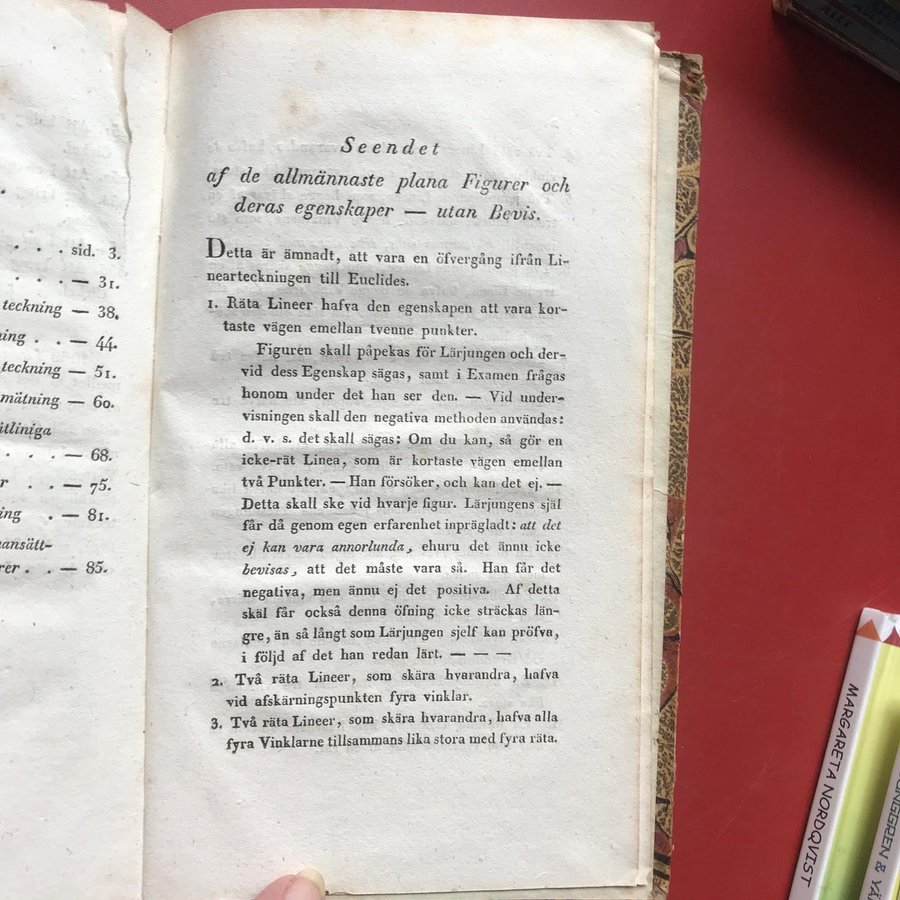 sid. 3.
— 31.
teckning — 38.
ning . . — 44.
teckning — 51.
mätning — 60.
itliniga
— 68.
r . . — 75.
ing . — 81.
ansätt-
rer . . — 85.
Seendet
af de allmännaste plana Figurer och
deras egenskaper — utan Bevis.
Detta är ämnadt, att vara en öfvergång ifrån Li-
nearteckningen till Euclides.
1. Räta Lineer hafva den egenskapen att vara kor-
taste vägen emellan tvenne punkter.
Figuren skall påpekas för Lärjungen och der-
vid dess Egenskap sägas, samt i Examen frågas
honom under det han ser den. — Vid under-
visningen skall den negativa methoden användas:
d. v. s. det skall sägas: Om du kan, så gör en
icke-rät Linea, som är kortaste vägen emellan
två Punkter. — Han försöker, och kan det ej. —
Detta skall ske vid hvarje figur. Lärjungens själ
får då genom egen erfarenhet inprägladt: att det
ej kan vara annorlunda, ehuru det ännu icke
bevisas, att det måste vara så. Han får det
negativa, men ännu ej det positiva. Af detta
skäl får också denna öfning icke sträckas län-
gre, än så långt som Lärjungen sjelf kan pröfva,
i följd af det han redan lärt. — — —
2. Två räta Lineer, som skära hvarandra, hafva
vid afskärningspunkten fyra vinklar.
3. Två räta Lineer, som skära hvarandra, hafva alla
fyra Vinklarne tillsammans lika stora med fyra räta.
MARGARETA NORDQVIST